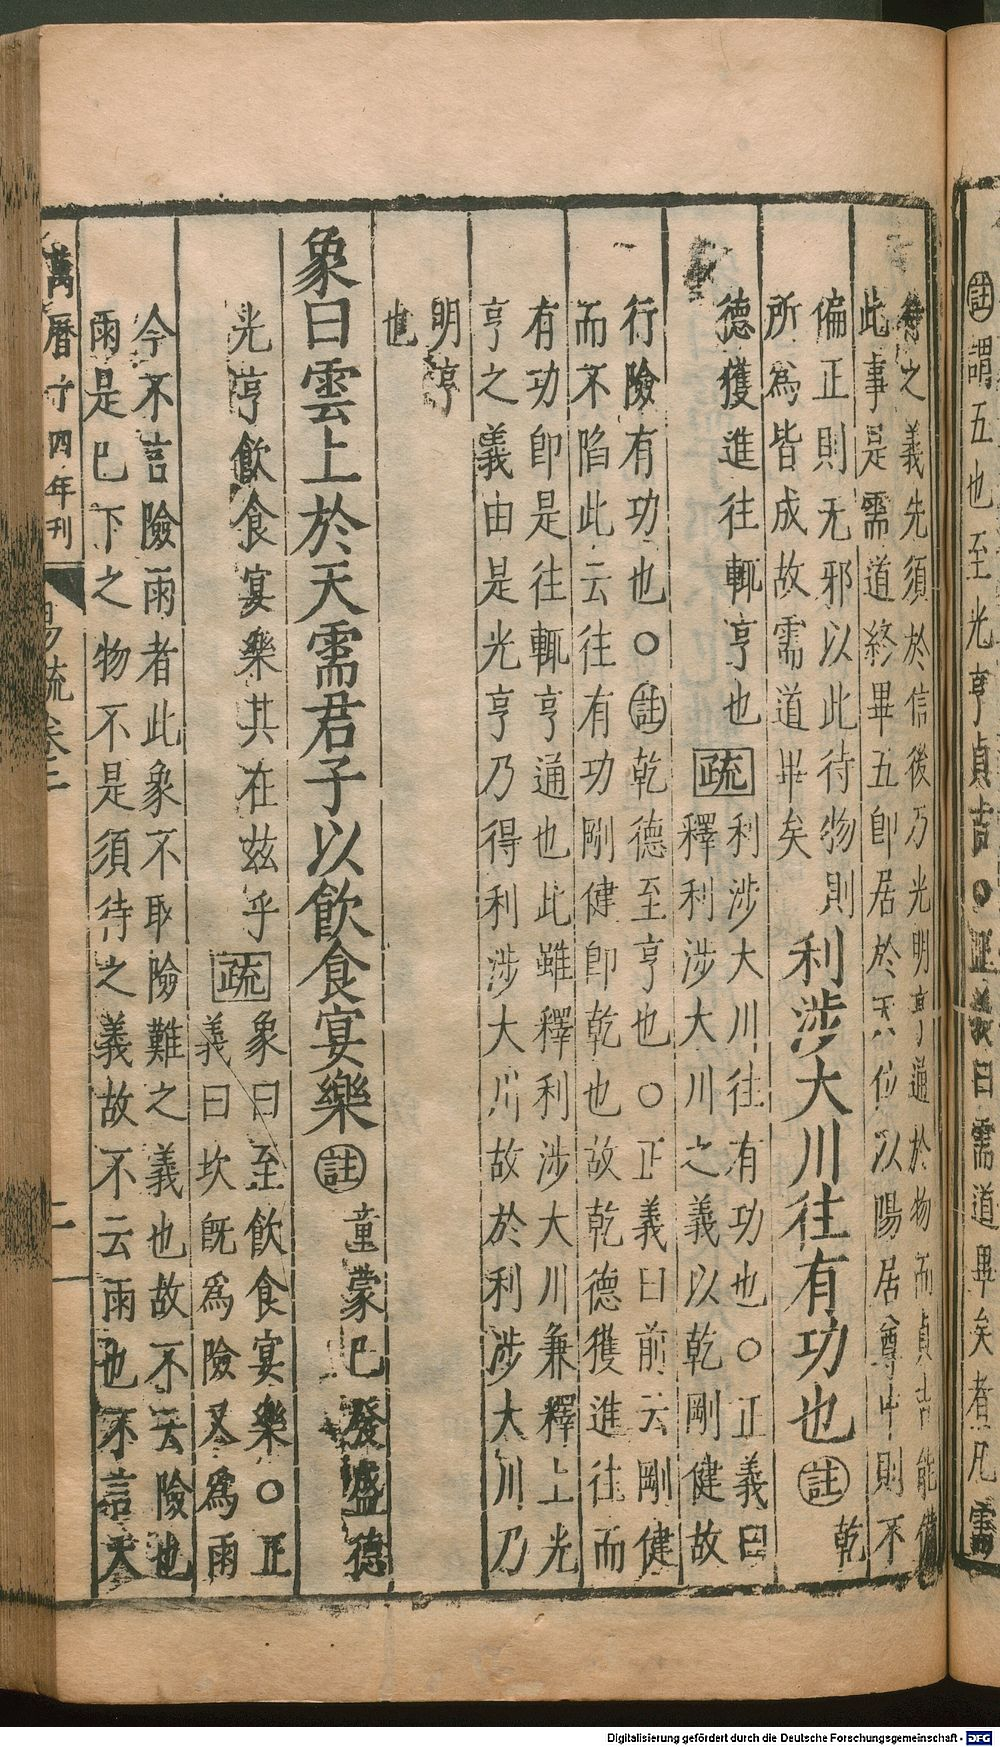 註謂五也至光亨貞吉〇正義曰需道畢矣者凡需
待之義先須於信後乃光明亨通於物而貞吉能備
此事是需道終畢五即居於天位以陽居尊中則不
偏正則无邪以此待物則
所為皆成故需道畢矣
利涉大川往有功也註乾
德獲進往輒亨也疏
利涉大川往有功也〇正義曰
釋利涉大川之義以乾剛健故
行險有功也〇註乾德至亨也〇正義曰前云剛健
而不陷此云往有功剛健即乾也故乾德獲進往而
有功即是往輒亨通也此雖釋利涉大川兼釋上光
亨之義由是光亨乃得利涉大川故於利涉大川乃
明亨
也
象曰雲上於天需君子以飲食宴樂註童蒙已發盛德
光亨飲食宴樂其在茲乎疏
象曰至飲食宴樂〇正
義曰坎既為險又為雨
今不言險雨者此象不取險難之義也故不云險也
雨是已下之物不是須待之義故不云雨也不言天
萬曆十四年刊
易疏卷二
二
Digitalisierung gefördert durch die Deutsche Forschungsgemeinschaft - DFG